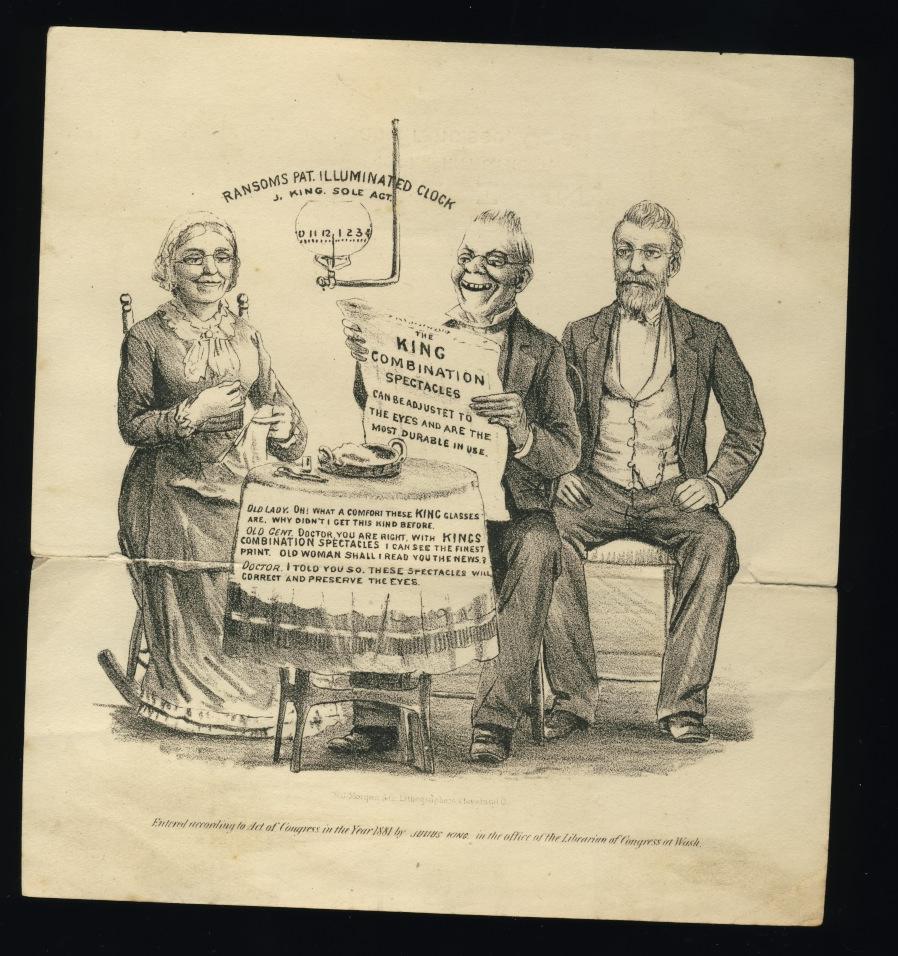 RANSOMS PAT. ILLUMINATED CLOCK
J. KING. SOLE AGT.
10 11 12 1 2 3 4
THE
KING
COMBINATION
SPECTACLES
CAN BE ADJUSTET TO
THE EYES AND ARE THE
MOST DURABLE IN USE.
OLD LADY. OH! WHAT A COMFORT THESE KING GLASSES
ARE. WHY DIDN'T I GET THIS KIND BEFORE.
OLD GENT. DOCTOR, YOU ARE RIGHT, WITH KINGS
COMBINATION SPECTACLES I CAN SEE THE FINEST
PRINT. OLD WOMAN SHALL I READ YOU THE NEWS?
DOCTOR. I TOLD YOU SO. THESE SPECTACLES WILL
CORRECT AND PRESERVE THE EYES.
Morgan & Co. Lithographers Cleveland O.
Entered according to Act of Congress in the Year 1881 by JULIUS KING. in the office of the Librarian of Congress at Wash.